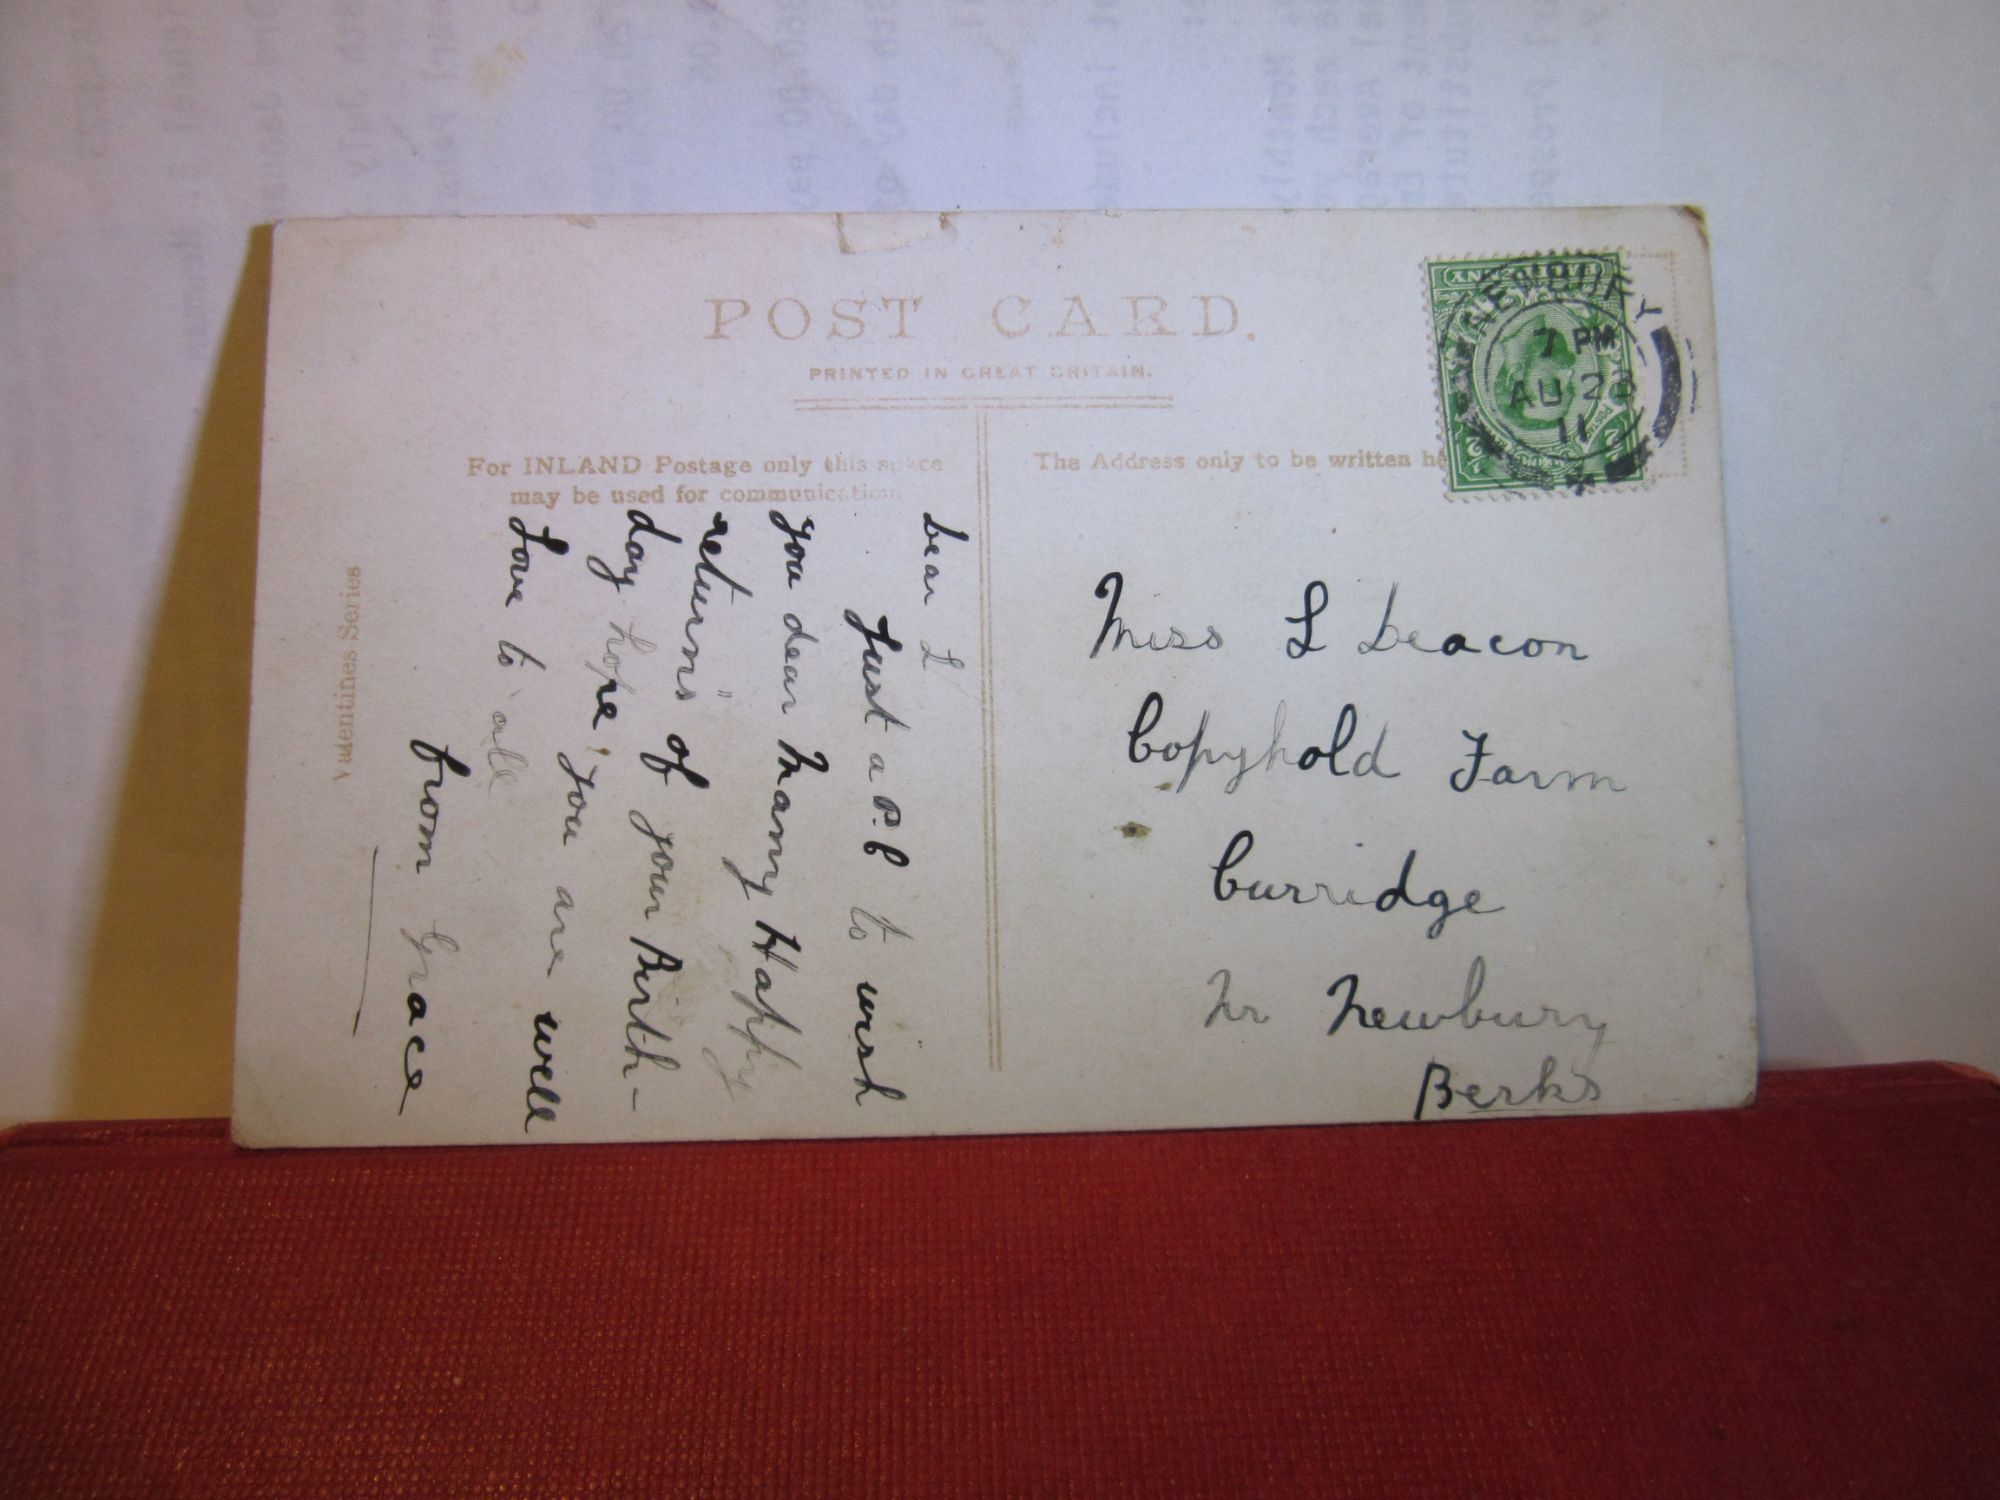 POST CARD.
PRINTED IN GREAT BRITAIN.
For INLAND Postage only this space
may be used for communication.
The Address only to be written
NEWBURY
7 PM
AU 28
11
Valentines Series
Dear L
Just a P.C to wish
you dear Many Happy
returns of your Birth-
day hope you are well
Love to all
from Grace
Miss L Deacon
Copyhold Farm
Curridge
Nr Newbury
Berks